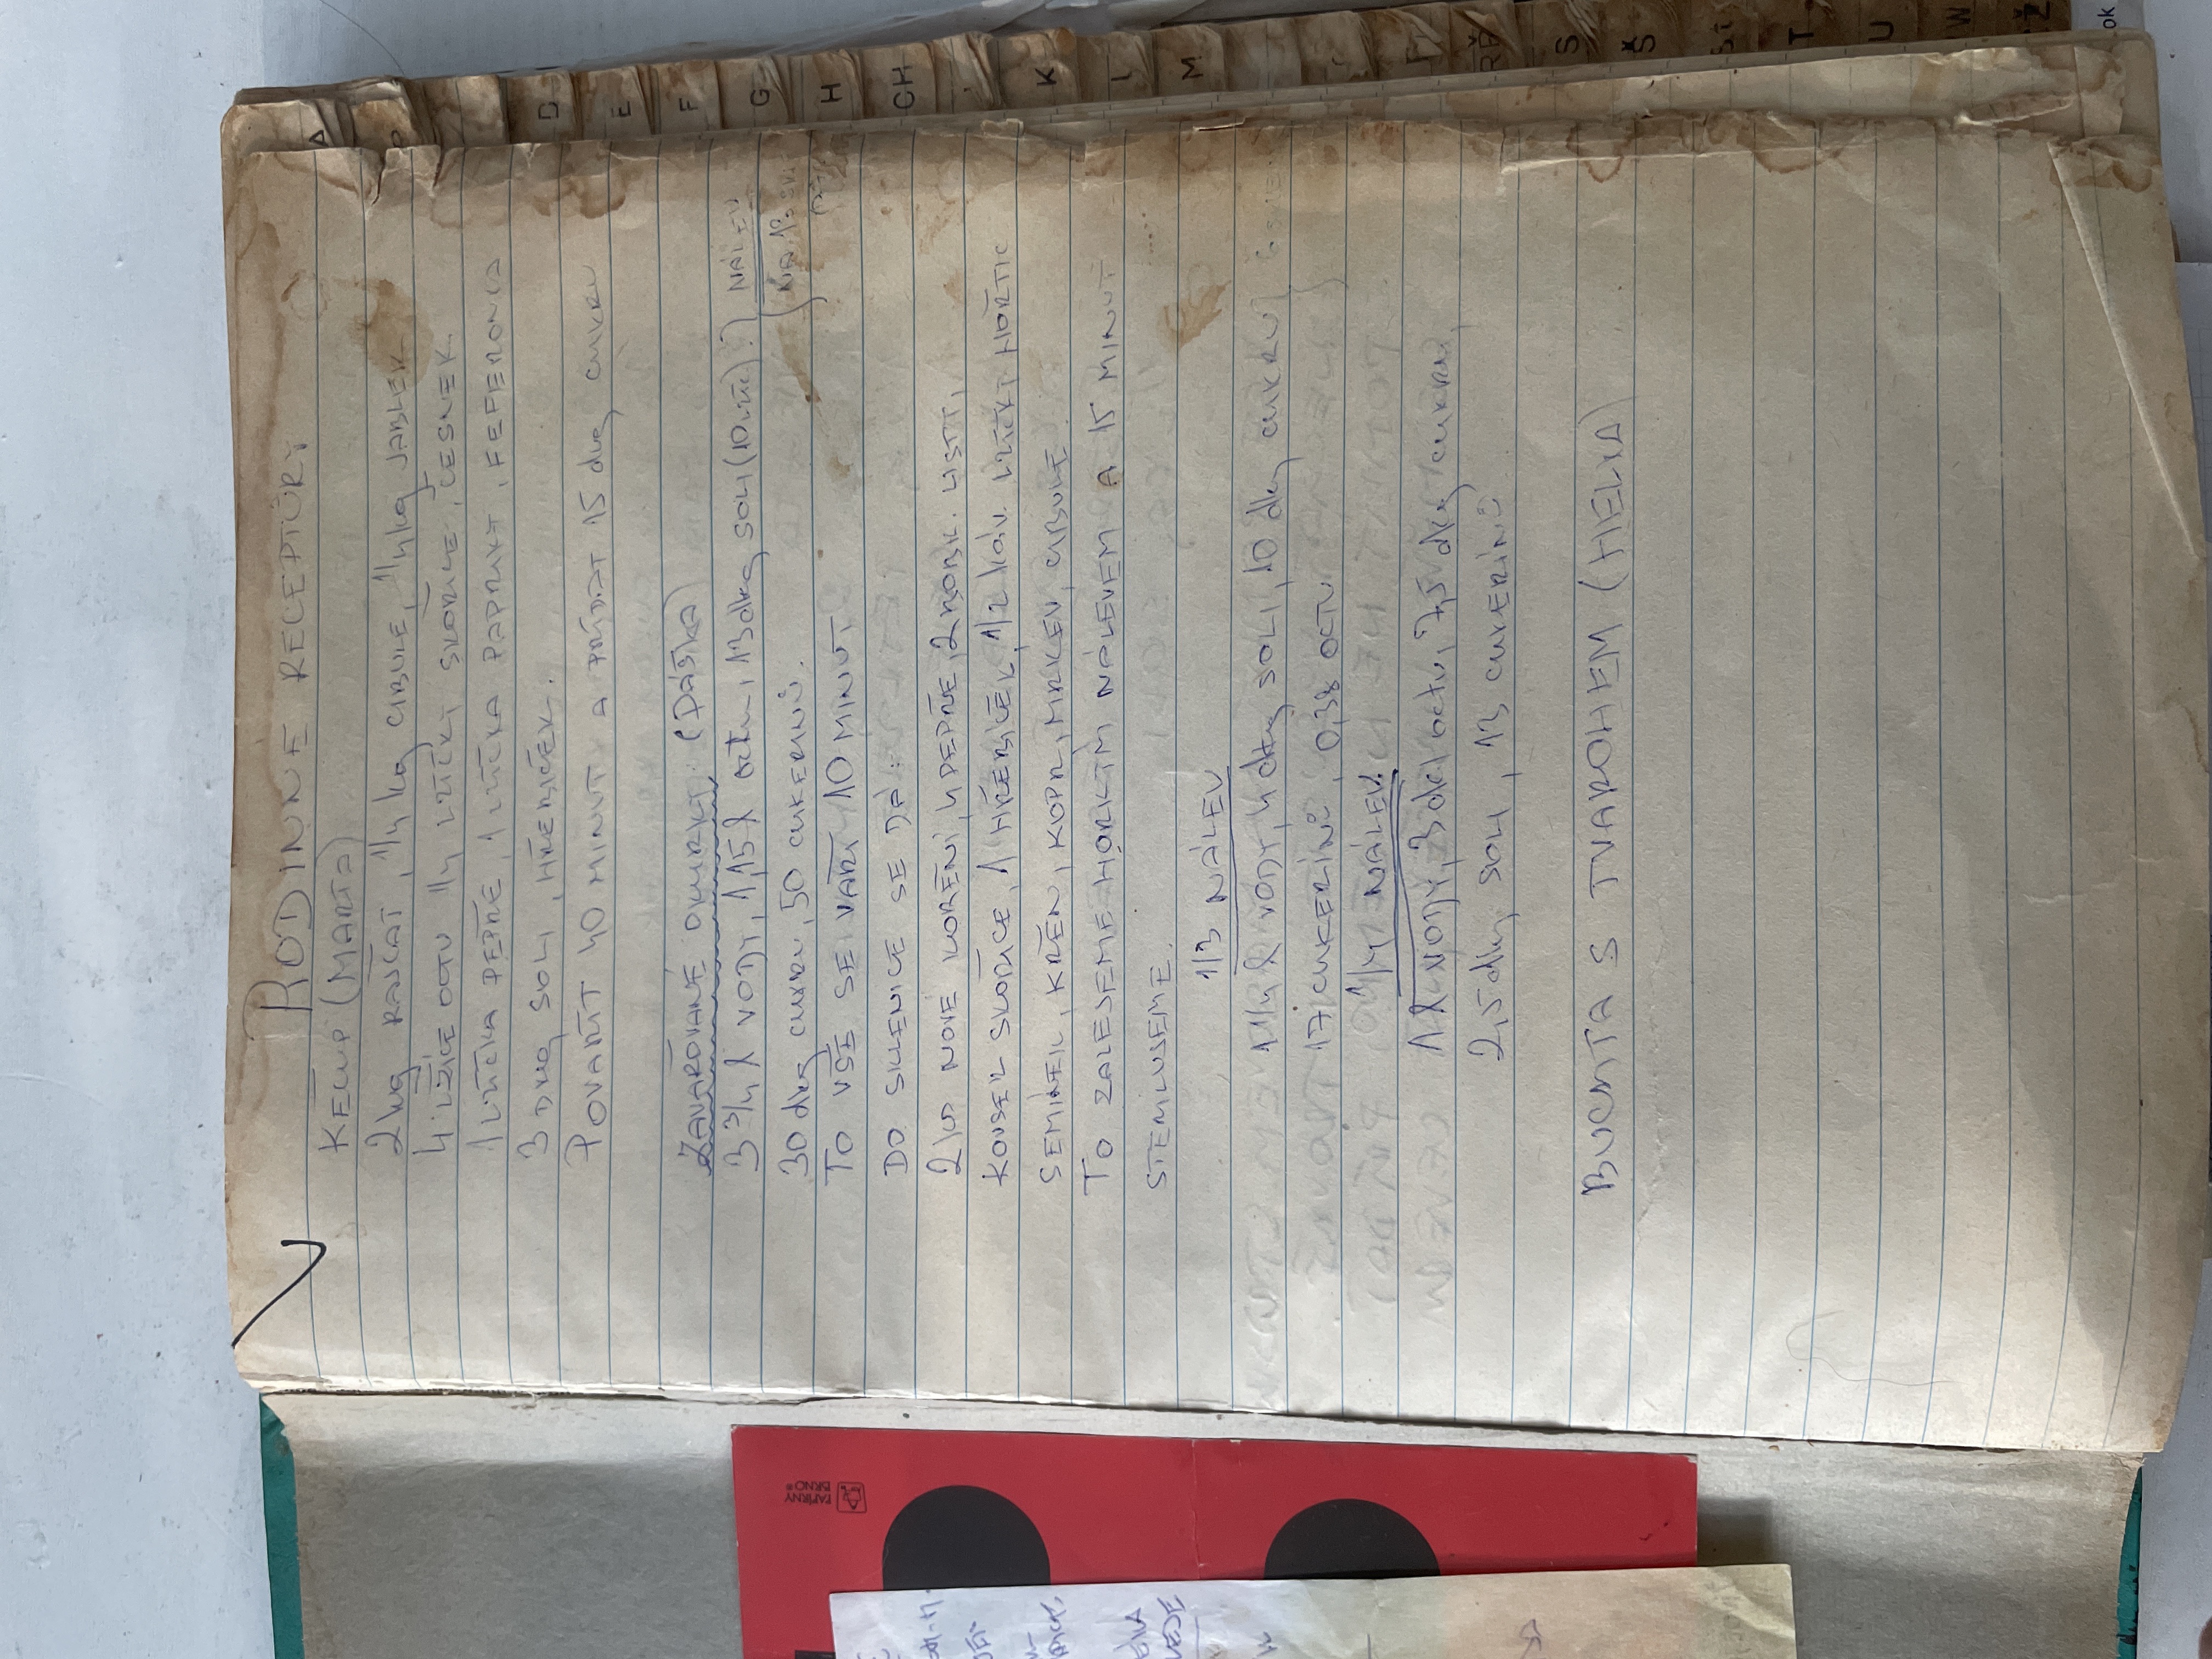 RODINNÉ RECEPTŮRY
KEČUP (MARTA)
2 kg RAJČAT, 1/4 kg CIBULE, 1/4 kg JABLEK
4 LŽÍCE OCTU 1/4 LŽÍČKY SKOŘICE, ČESNEK
1 LŽÍČKA PEPŘE, 1 LŽÍČKA PAPRIKY, FEFERONKA
3 DKg SOLI, HŘEBÍČEK.
POVAŘIT 40 MINUT A PŘIDAT 15 dkg CUKRU
ZAVAŘOVANÉ OKURKY (DÁŠKA)
3 3/4 l VODY, 1,15 l octu, 13 dkg SOLI (10 lžic). NÁLEV
30 dkg CUKRU, 50 CUKERINŮ. NA 13 SKL
TO VŠE SE VAŘÍ 10 MINUT
DO SKLENICE SE DÁ:
2 ks NOVÉ KOŘENÍ, 4 PEPŘE, 2 BOBK. LISTY,
KOUSEK SKOŘICE, 1 HŘEBÍČEK, 1/2 káv. LŽÍČKY HOŘTIC
SEMÍNEK, KŘEN, KOPR, MRKEV, CIBULE.
TO ZALEJEME HORKÝM NÁLEVEM A 15 MINUT
STERILUJEME.
1/3 NÁLEV
1 1/4 l VODY, 4 dkg SOLI, 10 dkg CUKRU
17 CUKERINŮ, 0,38 OCTU
1/4 NÁLEV
1 l VODY, 3 dcl octu, 7,5 dkg CUKRU,
2,5 dkg SOLI, 13 CUKERINŮ
BUCHTA S TVAROHEM (HELKA)
PAPÍRNY
BRNO
A
D
E
F
G
H
CH
K
L
M
RŘ
S
Š
T
U
W
Ž
ok